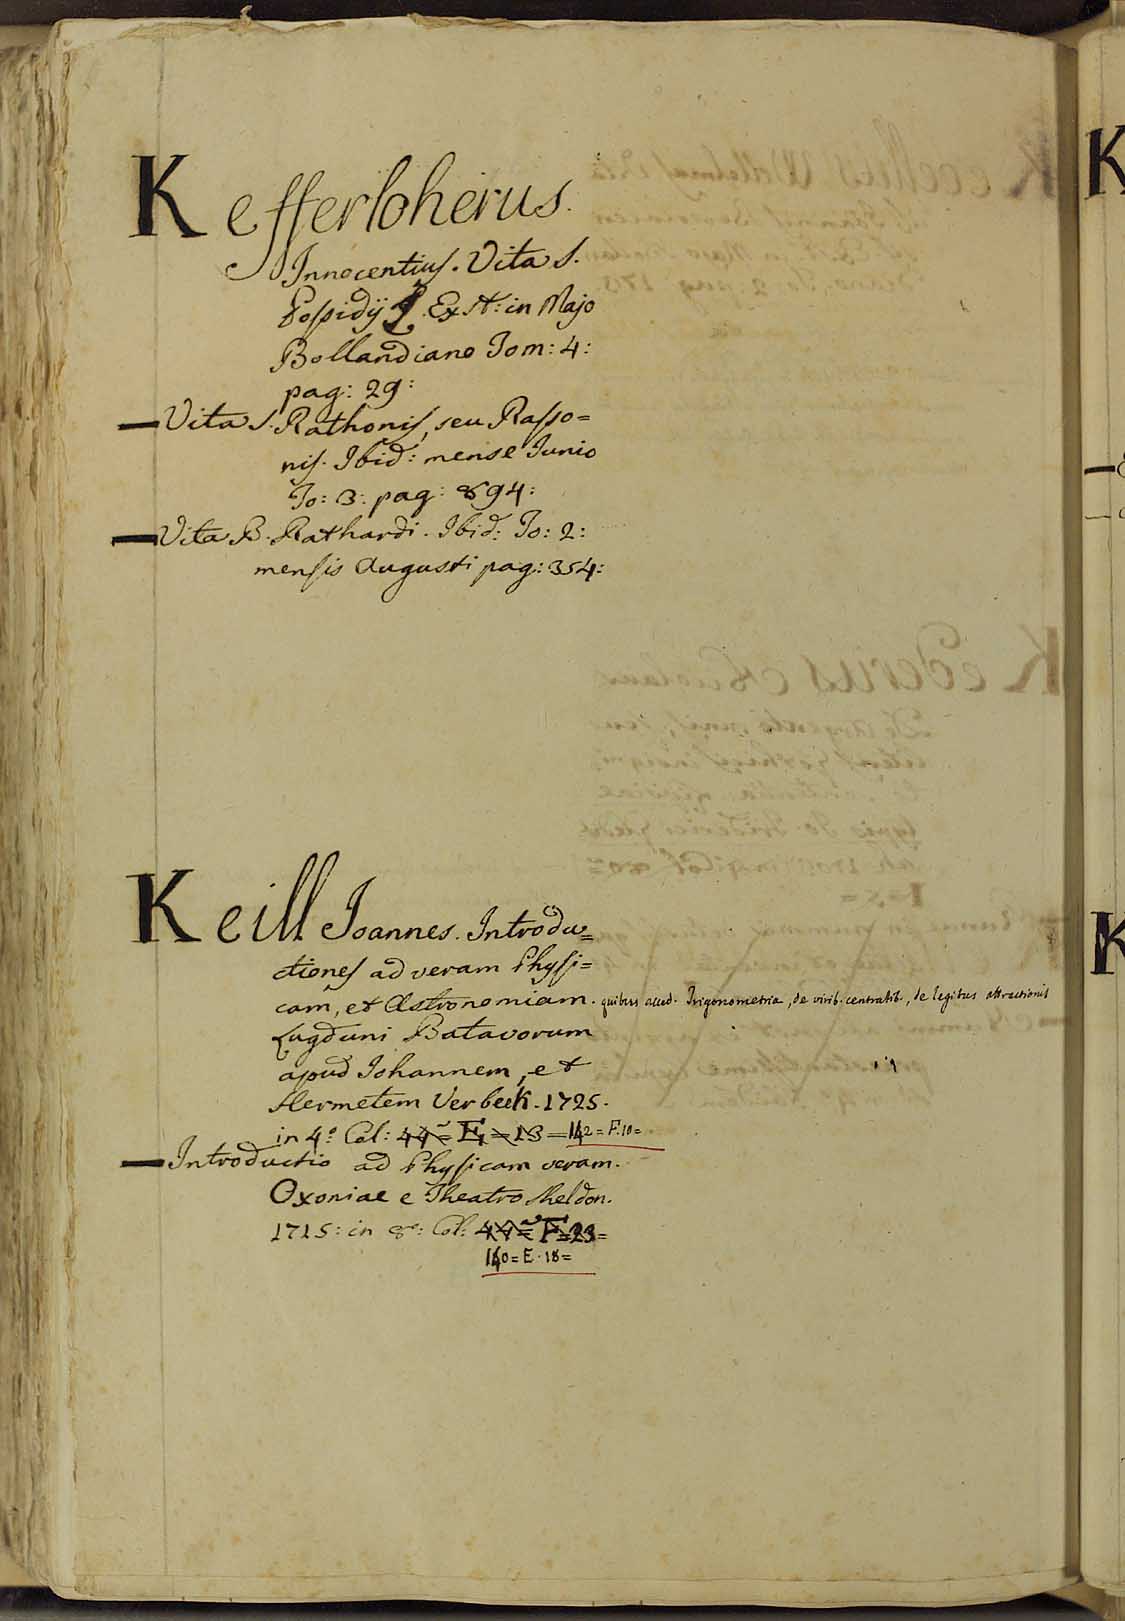 Kefferloherus.
Innocentius. Vita S.
Possidij Ex St: in Majo
Bollandiano Tom: 4:
pag: 29:
— Vita S. Rathonis, seu Rasso=
nis. Ibid: mense Iunio
To: 3: pag: 894:
— Vita B. Rathardi. Ibid: To: 2:
mensis Augusti pag: 354:
Keill Ioannes. Introdu=
ctiones ad veram Physi=
cam, et Astronomiam. quibus accd. Trigonometria, de virib. centralib., de legibus attractionis
Lugduni Batavorum
apud Iohannem, et
Hermetem Verbeek. 1725.
in 4:º Col: 44= E = 13 = 142 = F. 10 =
— Introductio ad Physicam veram.
Oxoniae e Theatro Sheldon.
1715: in 8º: Col: 44= F=23=
140 = E. 18 =
K
K